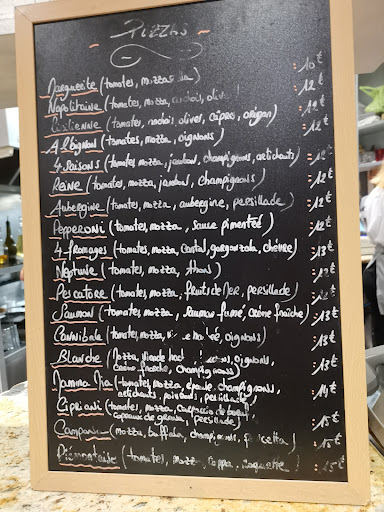 Pizzas
Marguerite (tomates, mozzarella) : 10€
Napolitaine (tomates, mozza, anchois, olives : 12€
Sicilienne (tomates, anchois, olives, capres, origan) : 12€
Albignon (tomates, mozza, oignons) : 12€
4 Saisons (tomates, mozza, jambon, champignons, artichauts) : 12€
Reine (tomates, mozza, jambon, champignons) : 12€
Aubergine (tomates, mozza, aubergine, persillade) : 12€
Pepperoni (tomates, mozza, sauce pimentée) : 12€
4 fromages (tomates, mozza, cantal, gorgonzola, chèvre) : 13€
Neptune (tomates, mozza, thon)
Pescatore (tomates, mozza, fruits de Mer, persillade)
Saumon (tomates, mozza, saumon fumé, crème fraîche) : 13€
Cannibale (tomates, mozza, haché, oignons) : 13€
Blanche (Mozza, viande hach oignons, : 13€
crème fraîche, Champignons)
Mamma Mia (tomates, mozza, épaule, champignons, : 14€
artichauts, poivrons, persillade)
Cipriani (tomates, mozza, Carpaccio de boeuf, : 15€
Copeaux de grana, persillade)
Campania (mozza, buffala, champignons, : 15€
Piémontaise (tomates, mozz coppa, roquette) : 15€